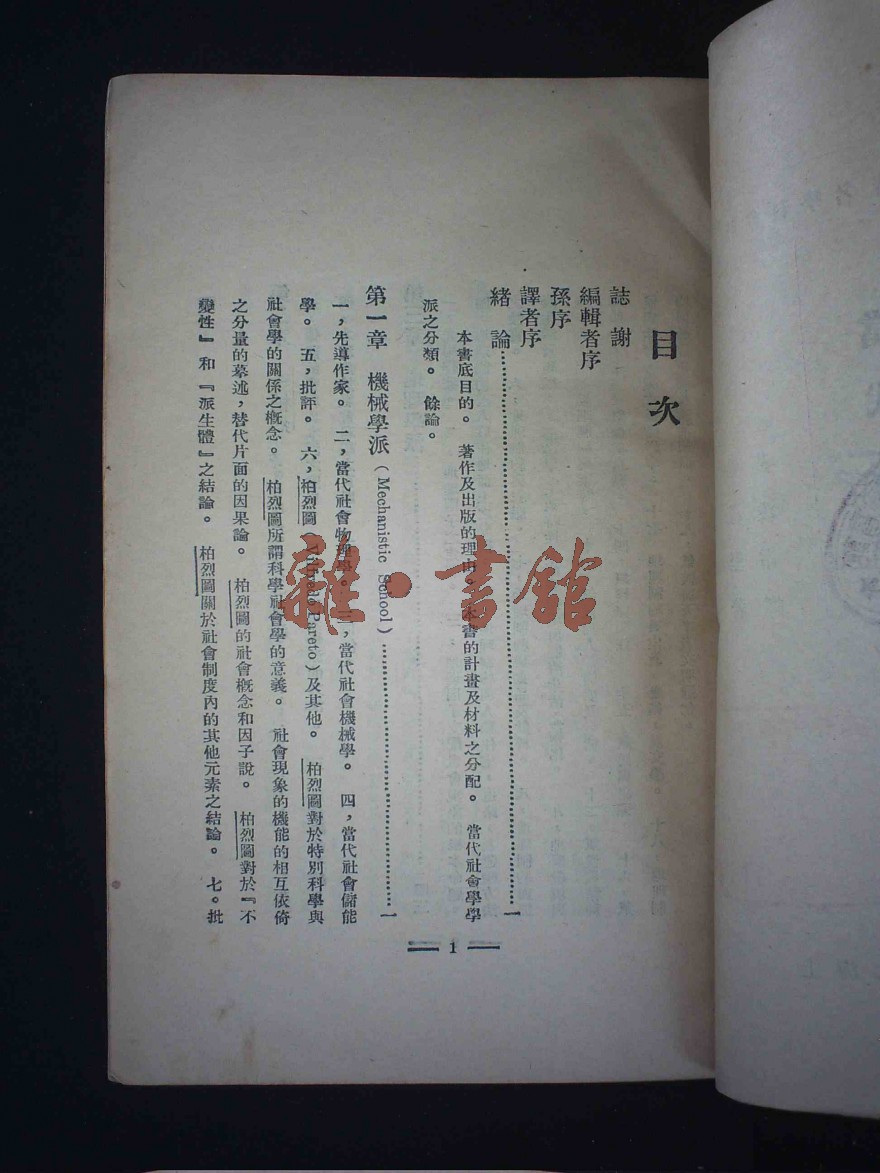 目次
誌謝
編輯者序
孫序
譯者序
緒論……一
本書底目的。 著作及出版的理由。本書的計畫及材料之分配。 當代社會學學
派之分類。 餘論。
第一章 機械學派(Mechanistic School)……一
一,先導作家。 二,當代社會物理學。 三,當代社會機械學。 四,當代社會儲能
學。 五,批評。 六,柏烈圖(Vilfredo Pareto)及其他。 柏烈圖對於特別科學與
社會學的關係之概念。 柏烈圖所謂科學社會學的意義。 社會現象的機能的相互依倚
之分量的摹述,替代片面的因果論。 柏烈圖的社會概念和因子說。 柏烈圖對於『不
變性』和『派生體』之結論。 柏烈圖關於社會制度內的其他元素之結論。 七。批
1
雜·書館